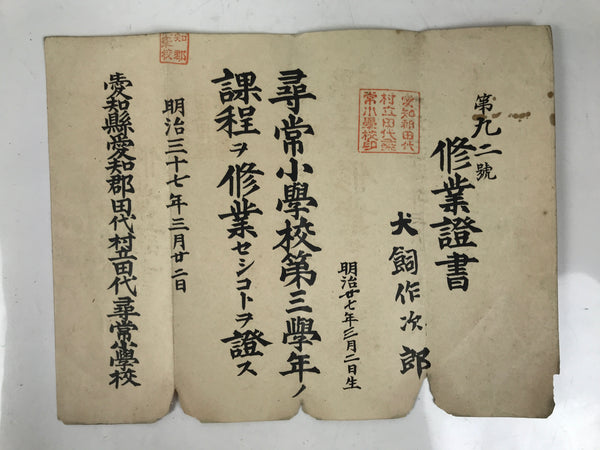 第九二號
修業證書
犬飼作次郎
明治廿七年三月二日生
愛知郡田代
村立田代尋
常小學校印
尋常小學校第三學年ノ
課程ヲ修業セシコトヲ證ス
明治三十七年三月廿二日
知郡
愛知縣愛知郡田代村立田代尋常小學校